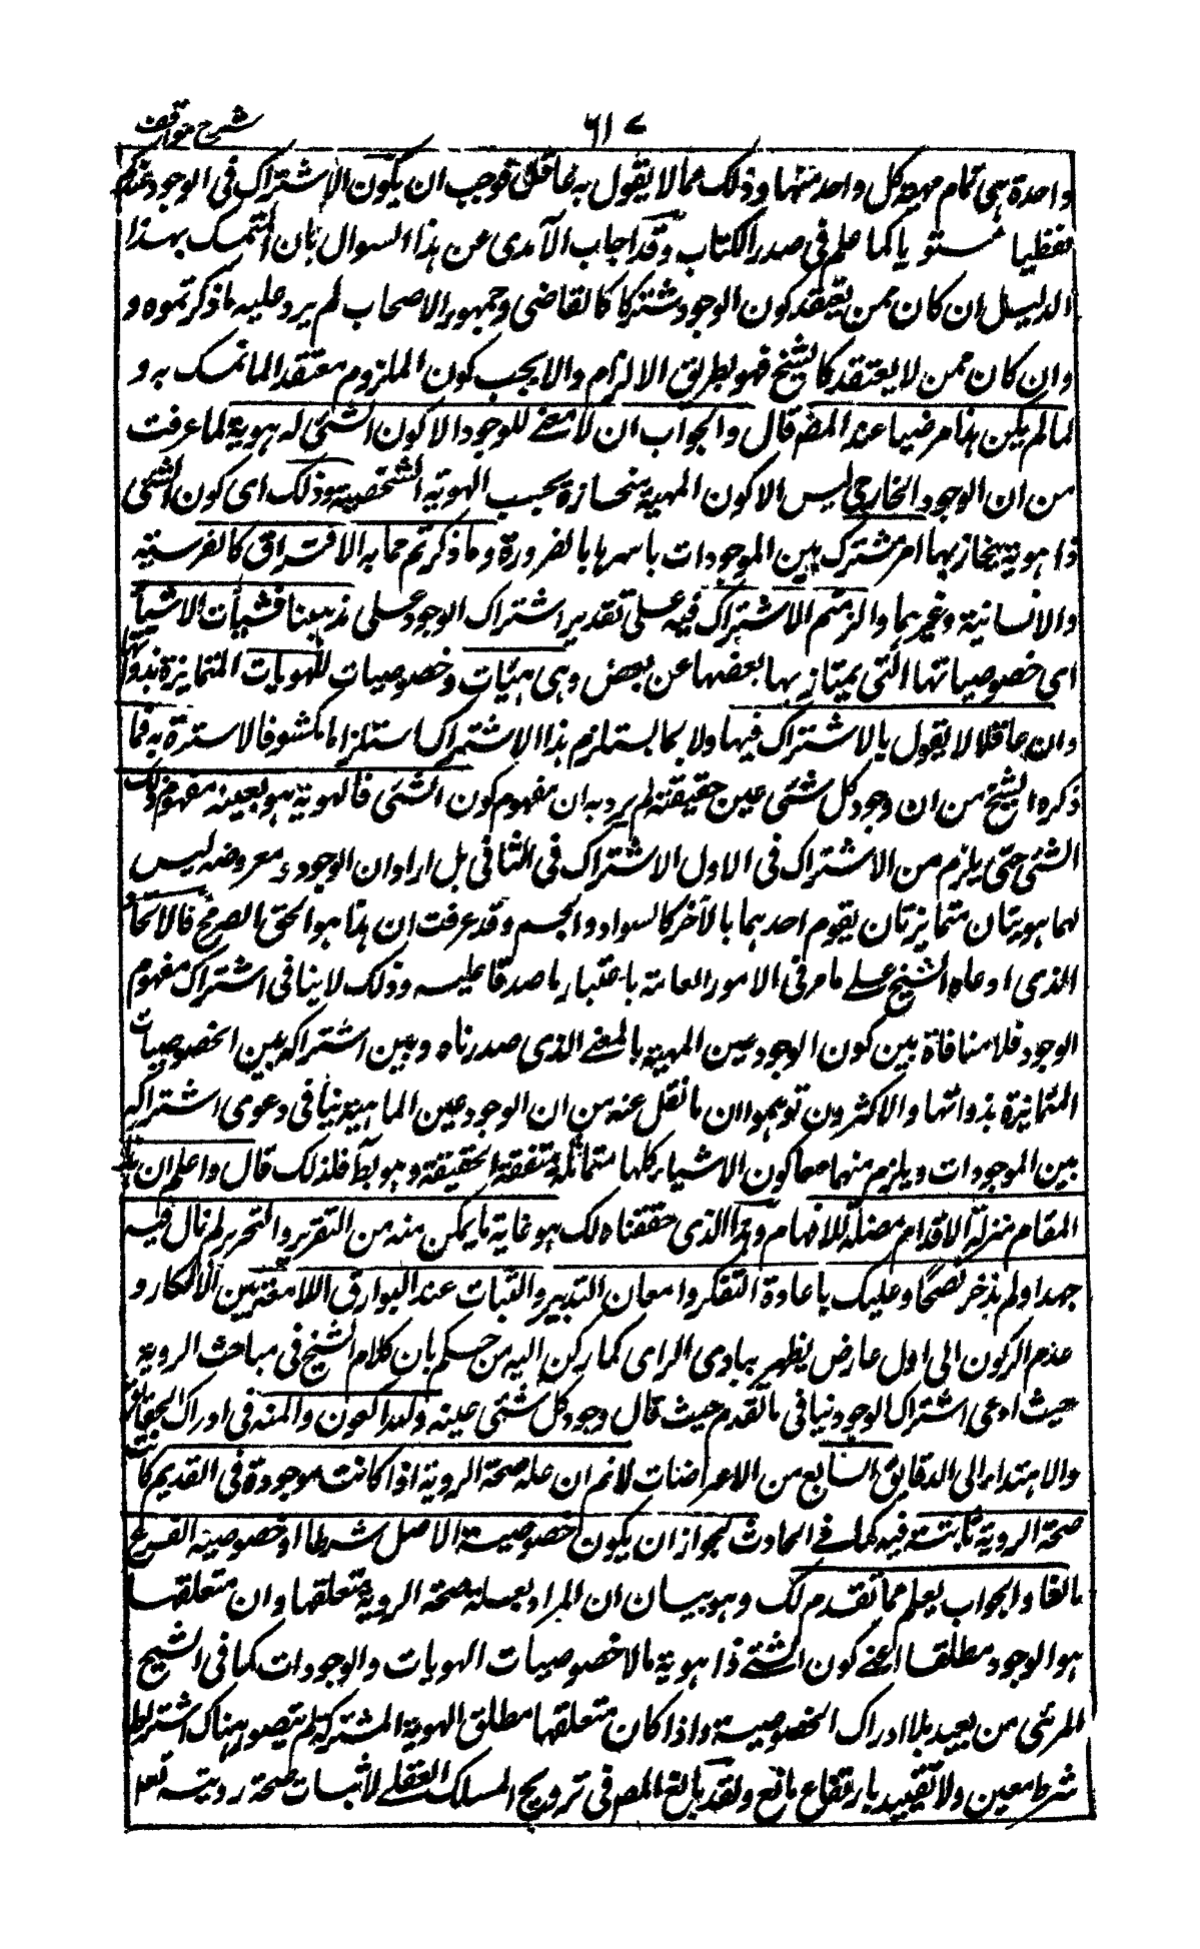 شرح مواقف
٦١٧
واحدة هى تمام مهية كل واحد منها وذلك مما لا يقول به عاقل فوجب ان يكون الاشتراك فى الوجود عندكم
لفظيا لا معنويا كما علم فى صدر الكتاب وقد اجاب الآمدى عن هذا السوال بان المتمسك بهذا
الدليل ان كان ممن يعتقد كون الوجود مشتركا كالقاضى وجمهور الاصحاب لم يرد عليه ما ذكرتموه و
وان كان ممن لا يعتقد كالشيخ فهو بطريق الالزام والا يجب كون الملزوم معتقد الما تمسك به و
لما لم يكن هذا مرضيا عند المصم قال والجواب ان لا معنے للوجود الا كون الشئى له هوية لما عرفت
من ان الوجود الخارجى ليس الا كون المهية منحازة بحسب الهوية الشخصية وذلك اى كون الشئى
ذا هوية ينحاز بها امر مشترك بين الموجودات باسرها بالضرورة وما ذكرتم مما به الافتراق كالفرسية
والانسانية وغيرهما والزمتم الاشتراك فيه على تقدير اشتراك الوجود على مذهبنا فشيأت الاشيأ
اى خصوصياتها التى يمتاز بها بعضها عن بعض وهى هيئات وخصوصيات للهويات المتمايزة بذواتها
وان عاقلا لا يقول بالاشتراك فيها ولا بما يستلزم هذا الاشتراك استلزاما مكشوفا لا سترة به فما
ذكره الشيخ من ان وجود كل شئى عين حقيقته لم يرد به ان مفهوم كون الشئى ذا هوية هو بعينه مفهوم ذلك
الشئى حتى يلزم من الاشتراك فى الاول الاشتراك فى الثانى بل اراد ان الوجود ومعروضه ليس
لهما هويتان متمايزتان يقوم احدهما بالآخر كالسواد والجسم وقد عرفت ان هذا هو الحق الصريح فالاتحاد
الذى ادعاه الشيخ على ما مر فى الامور العامة باعتبار ما صدقا عليه وذلك لا ينافى اشتراك مفهوم
الوجود فلا منافاة بين كون الوجود عين المهية بالمعنے الذى صدرناه وبين اشتراكه بين الخصوصيات
المتمايزة بذواتها والاكثرون توهموا ان ما نقل عنه من ان الوجود عين الماهية ينافى دعوى اشتراكه
بين الموجودات ويلزم منهما معا كون الاشياء كلها متماثلة متفقة الحقيقة وهو بط فلذلك قال واعلم ان هذا
المقام منزلة الاقدام مضلة للافهام وهذا الذى حققناه لك هو غاية ما يمكن منه من التقرير والتحرير لم نال فيه
جهدا ولم نذخر نصحا وعليك باعادة التفكر وامعان التدبير والثبات عند البوارق اللامعة من الافكار و
عدم الركون الى اول عارض يظهر ببادى الراى كما ركن اليه من حكم بان كلام الشيخ فى مباحث الروية
حيث ادعى اشتراك الوجود ينافى ما تقدم حيث قال وجود كل شئى عينه ولله العون والمنه فى ادراك الحقائق
والاهتداء الى الدقايق السابع من الاعتراضات لانم ان علة صحة الروية اذا كانت موجودة فى القديم كانت
صحة الروية ثابتة فيه كما فى الحادث لجواز ان يكون خصوصية الاصل شرطا او خصوصية الفرع
مانعا والجواب يعلم مما تقدم لك وهو بيان ان المراد بعلة صحة الروية متعلقها وان متعلقها
هو الوجود مطلقا اعنے كون الشئے ذا هوية ما لا خصوصيات الهويات والوجودات كما فى الشيح
المرئى من بعيد بلا ادراك الخصوصية واذا كان متعلقها مطلق الهوية المشتركة لم يتصور هناك اشتراط
شرط معين ولا تقييد بارتفاع مانع ولقد بالغ المصم فى ترويج المسلك العقلے لاثبات صحة رويته تعه